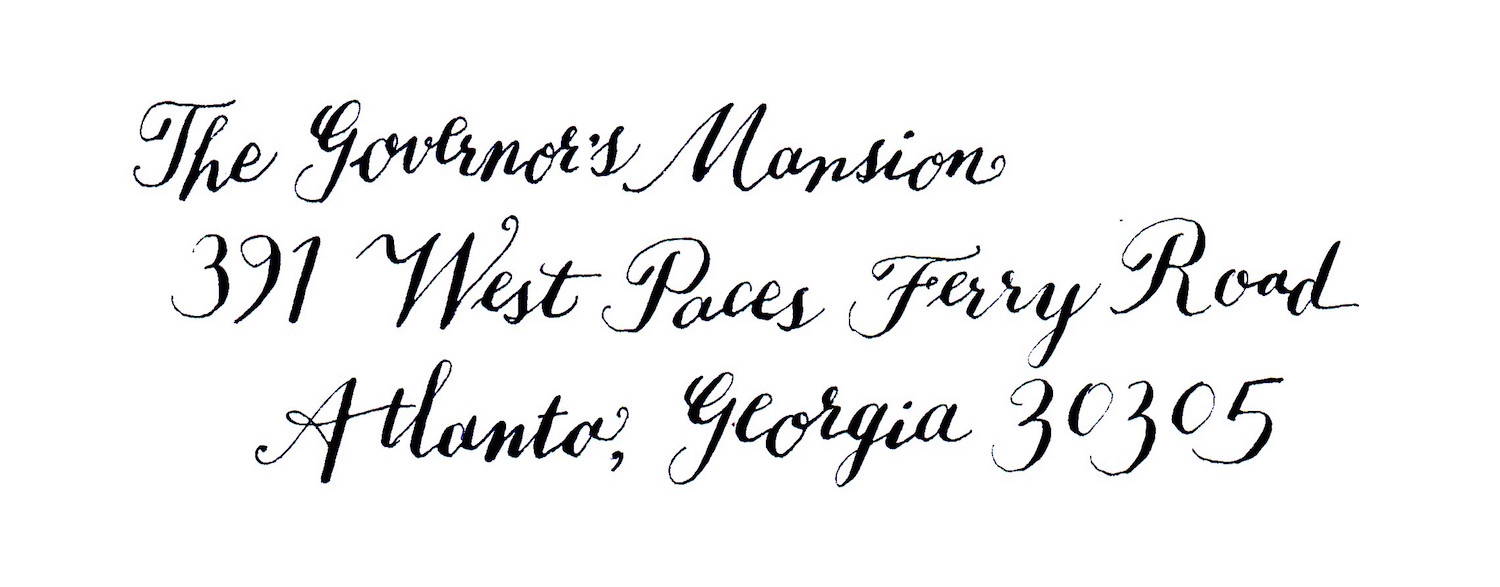 The Governor's Mansion
391 West Paces Ferry Road
Atlanta, Georgia 30305